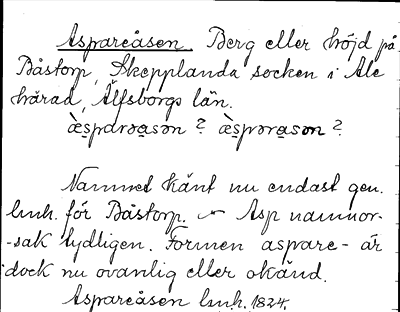 Aspareåsen. Berg eller höjd på
Båstorp, Skepplanda socken i Ale
härad, Älfsborgs län.
æ̀sparəasən ? æ̀sprərasən ?
Namnet känt nu endast gen.
lmk. för Båstorp. ~ Asp namnor-
-sak tydligen. Formen aspare- är
dock nu ovanlig eller okänd.
Aspareåsen lmk. 1824.